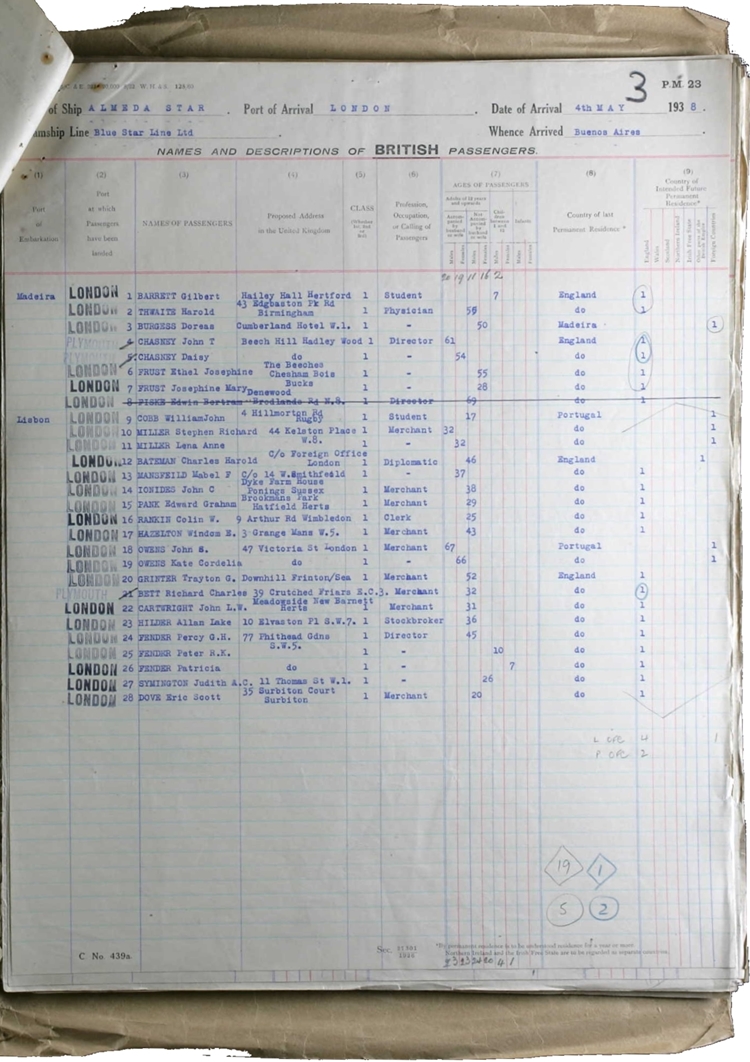 3 P.M. 23
of Ship ALMEDA STAR. Port of Arrival LONDON Date of Arrival 4th MAY 1938.
amship Line Blue Star Line Ltd. Whence Arrived Buenos Aires.
NAMES AND DESCRIPTIONS OF BRITISH PASSENGERS.
(1) (2) (3) (4) (5) (6) (7) (8) (9)
Port of Embarkation Port at which Passengers have been landed NAMES OF PASSENGERS Proposed Address in the United Kingdom CLASS Profession, Occupation, or Calling of Passengers AGES OF PASSENGERS Country of last Permanent Residence* Country of Intended Future Permanent Residence*
Adults of 12 years and upwards
Males Females Males Females Males Females Males Females England Wales Scotland Northern Ireland Irish Free State Foreign Countries
20 19 11 16 2
Madeira LONDON 1 BARRETT Gilbert Hailey Hall Hertford 1 Student 7 England 1
LONDON 2 THWAITE Harold 43 Edgbaston Pk Rd Birmingham 1 Physician do 1
LONDON 3 BURGESS Doreas Cumberland Hotel W.1. 1 - 50 Madeira 1
PLYMOUTH 4 CHASNEY John T Beech Hill Hadley Wood 1 Director 61 England 1
PLYMOUTH 5 CHASNEY Daisy do 1 - 54 do 1
LONDON 6 FRUST Ethel Josephine The Beeches Chesham Bois 1 - 55 do 1
LONDON 7 FRUST Josephine Mary Bucks 1 - 28 do 1
LONDON 8 PISKE Edwin Bertram Denewood Brodlands Rd N.8. 1 Director 69 do 1
Lisbon LONDON 9 COBB WilliamJohn 4 Hillmorton Rd Rugby 1 Student 17 Portugal 1
LONDON 10 MILLER Stephen Richard 44 Kelston Place W.8. 1 Merchant 32 do 1
LONDON 11 MILLER Lena Anne 1 - 32 do 1
LONDON 12 BATEMAN Charles Harold C/o Foreign Office London 1 Diplomatic 46 England 1
LONDON 13 MANSFEILD Mabel F C/o 14 W.Smithfeild 1 - 37 do 1
LONDON 14 IONIDES John C Dyke Farm House Ponings Sussex 1 Merchant 38 do 1
LONDON 15 PANK Edward Graham Brookmans Park Hatfield Herts 1 Merchant 29 do 1
LONDON 16 RANKIN Colin W. 9 Arthur Rd Wimbledon 1 Clerk 25 do 1
LONDON 17 HAZELTON Windom E. 3 Grange Mans W.5. 1 Merchant 43 do 1
LONDON 18 OWENS John S. 47 Victoria St London 1 Merchant 67 Portugal 1
LONDON 19 OWENS Kate Cordelia do 1 - 66 do 1
LONDON 20 GRINTER Trayton G. Downhill Frinton/Sea 1 Merchant 52 England 1
PLYMOUTH 21 BETT Richard Charles 39 Crutched Friars E.C.3. Merchant 32 do 1
LONDON 22 CARTWRIGHT John L.W. Meadowside New Barnett Herts 1 Merchant 31 do 1
LONDON 23 HILDER Allan Lake 10 Elvaston Pl S.W.7. 1 Stockbroker 36 do 1
LONDON 24 FENDER Percy G.H. 77 Phithead Gdns S.W.5. 1 Director 45 do 1
LONDON 25 FENDER Peter R.K. 1 - 10 do 1
LONDON 26 FENDER Patricia do 1 - 7 do 1
LONDON 27 SYMINGTON Judith A.C. 11 Thomas St W.1. 1 - 26 do 1
LONDON 28 DOVE Eric Scott 35 Surbiton Court Surbiton 1 Merchant 20 do 1
L OPC 4 1
P. OPC 2
19 1
5 2
C No. 439a. Sec.
*By permanent residence is to be understood residence for a year or more.
Northern Ireland and the Irish Free State are to be regarded as separate countries.